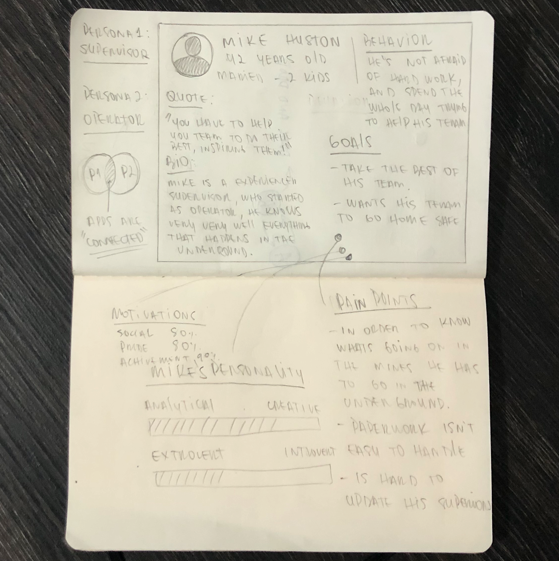 PERSONA 1:
SUPERVISOR
PERSONA 2:
OPERATOR
P1 P2
APPS ARE
"CONNECTED"
MIKE HUSTON
42 YEARS OLD
MARIED - 2 KIDS
QUOTE:
"YOU HAVE TO HELP
YOU TEAM TO DO THEIR
BEST, INSPIRING TEAM!"
BIO:
MIKE IS A EXPERIENCED
SUPERVISOR, WHO STARTED
AS OPERATOR, HE KNOWS
VERY VERY WELL EVERYTHING
THAT HAPPENS IN THE
UNDERGROUND.
BEHAVIOR
HE'S NOT AFRAID
OF HARD WORK,
AND SPEND THE
WHOLE DAY TRYING
TO HELP HIS TEAM
GOALS
- TAKE THE BEST OF
HIS TEAM.
- WANTS HIS TEAM
TO GO HOME SAFE
MOTIVATIONS
SOCIAL 50%
PRIDE 80%
ACHIEVEMENT 90%
MIKE'S PERSONALITY
ANALYTICAL CREATIVE
EXTROVERT INTROVERT
PAIN POINTS
- IN ORDER TO KNOW
WHATS GOING ON IN
THE MINES HE HAS
TO GO IN THE
UNDERGROUND.
- PAPERWORK ISN'T
EASY TO HANDLE
- IS HARD TO
UPDATE HIS SUPERVISORS